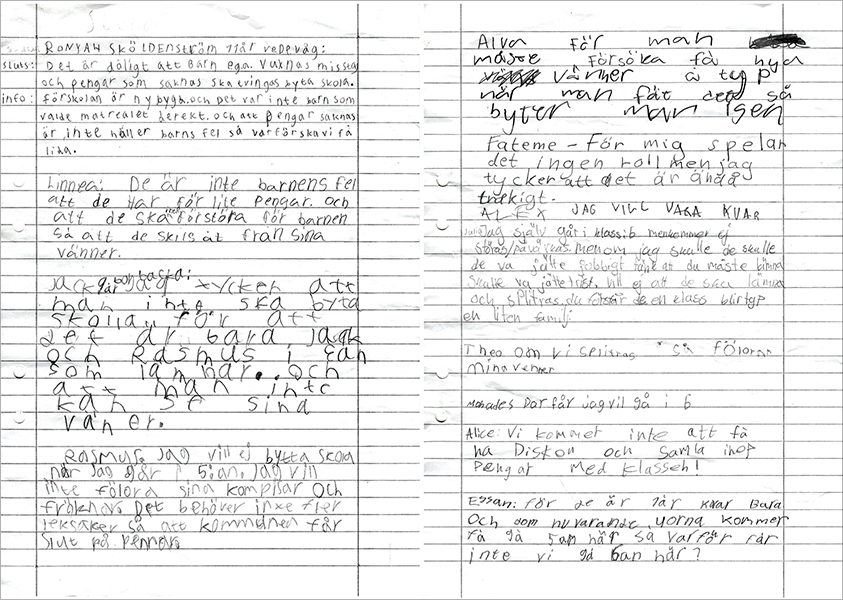 RONYAH SKÖLDENSTRÖM 11år vedevåg:
sluts: Det är döligt att Barn ega. Vuxnas misseg
och pengar som saknas ska tvingas byta skola.
info: förskolan är nybygd. och Det var inte barn som
valde matrealet Derekt. och att pengar saknas
är inte håller barns fel så varför ska vi få
lida.
Linnea: De är inte barnens fel
att de har för lite pengar. och
att de ska förstöra för barnen
så att de skils åt från sina
vänner.
Jack: Jag tycker att
man inte ska byta
skolla för att
det är bara jack
och Rasmus i 5an
som är når.. och
att man inte
kan se sina
väner.
Rasmus. Jag vill ej bytta skola
när jag går i 5:an. Jag vill
inte fölora sina kompisar och
fröknar. Det behöver inte fler
leksaker så att kommunen får
slut på pennor.
Alva för man
måste försöka få nya
vänner å typ
när man fåt det så
byter man igen
Fateme - För mig spelar
det ingen roll men jag
tycker att det är ändå
träkigt.
ALEX JAG VILL VARA KVAR
Jag själv går i klass: b men kommer ej
störas/påvärkas. Men om jag skulle de skulle
de va jätte jobbigt tänk att du måste lämna
skulle va jätte trist. vill ej att de ska lämna
och splitras. du förstår de en klass blir typ
en liten familj.
Theo om vi splitras så förlorar
mina venner
Monades Dorfår jag vil gå i 6
Alice: Vi kommer inte att få
ha Diskon och samla ihop
Pengar med klassen!
Essan: för de är 1år kvar Bara
Och dom nuvarande yorna kommer
få gå 5an här så varför får
inte vi gå 6an här?